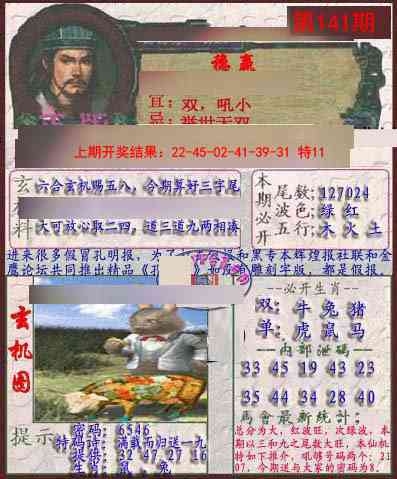 第141期
稳赢
宜：双，吼小
忌：举世无双
上期开奖结果：22-45-02-41-39-31 特11
玄
料
六合玄机赐五八，今期算好三字尾
大可放心取二四，道三道九两相凑
本期必开
尾数:127024
波色:绿 红
五行:木 火 土
进来很多假冒孔明报，为了
报和黑专本辉煌报社联和金
鹰论坛共同推出精品《孔
》如没有雕刻字版，都是假报。
玄机图
必开生肖
双: 牛 兔 猪
单: 虎 鼠 马
内部泄码
33 45 19 43 23
35 44 34 28 40
馬會最新統計:
总分为大，红波旺，次绿波，本
期以三和九之尾数大旺，本仙机
特如下推介，吼够号码两个: 21
07，今期送与大家的密码为8.
提示
密码: 6546
特码诗: 满载而归送一九
提供: 32 47 27 16
生肖: 鼠，兔